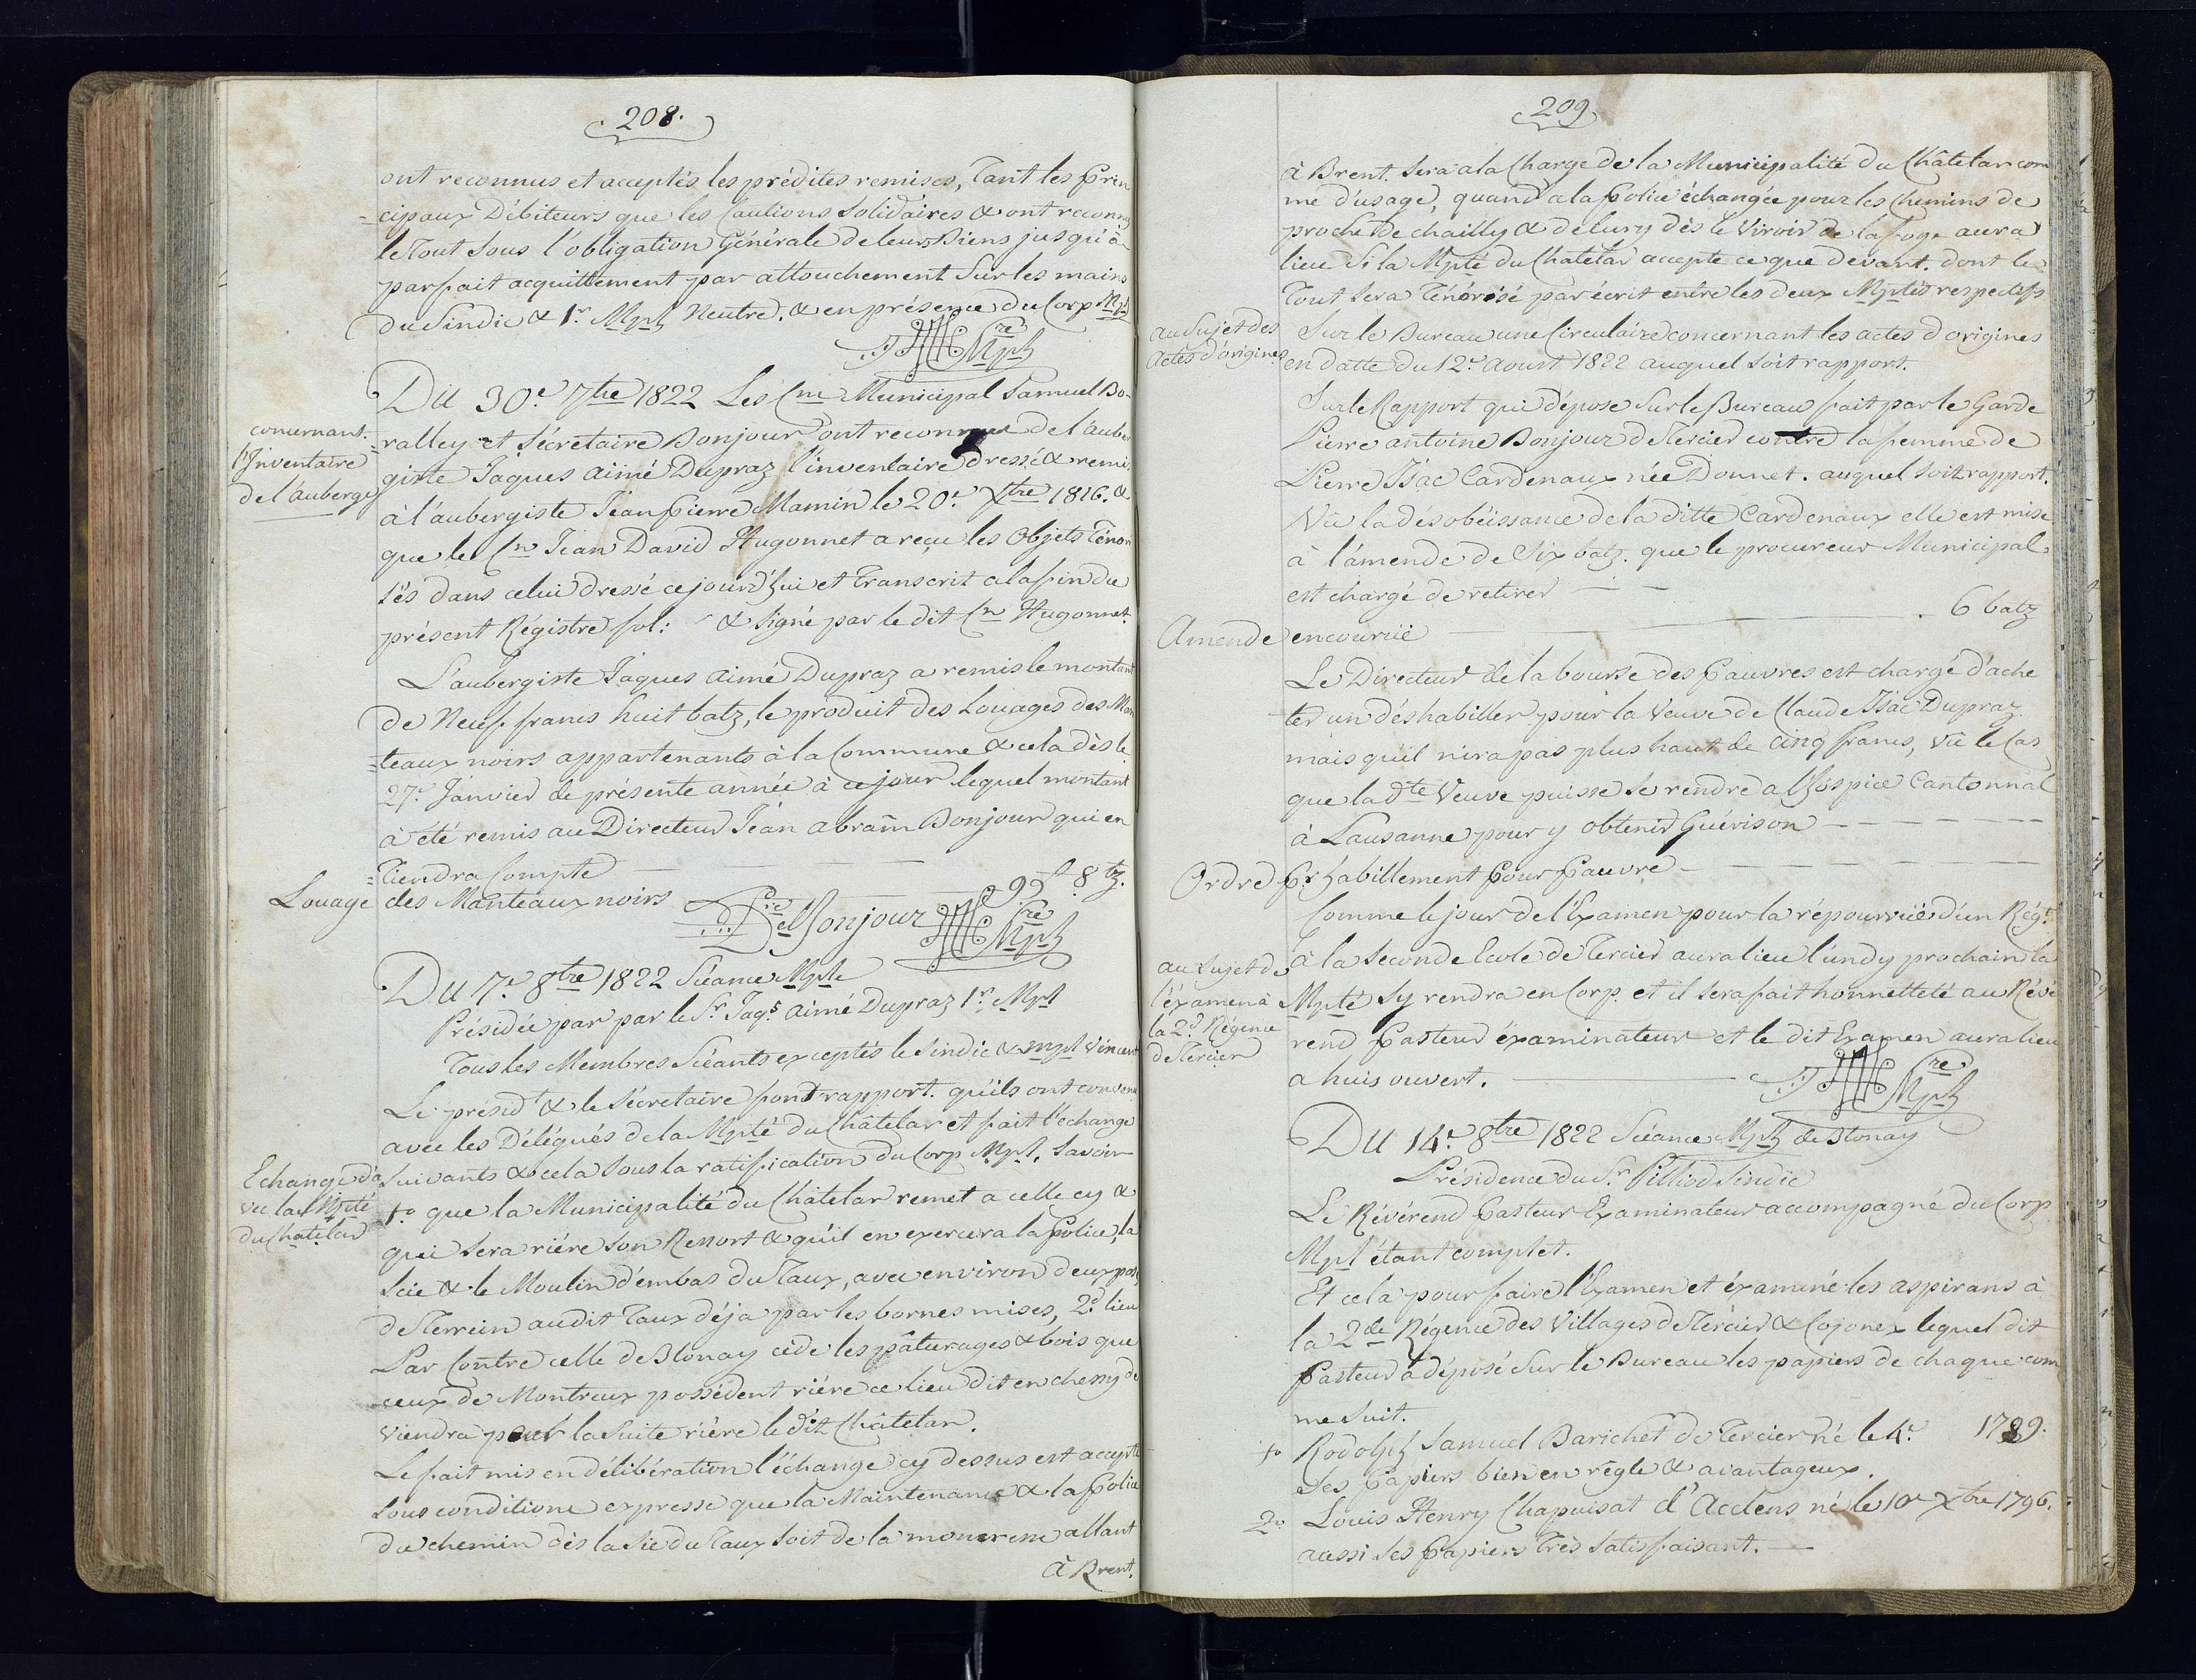 208.
ont reconnus et acceptés les prédites remises, Tant les Prin
=cipaux Débiteurs que les Cautions Solidaires & ont reconnu
le Tout sous l'obligation Générale de leurs Biens jusqu'à
parfait acquittement par attouchement sur les mains
du Sindic & 1r Mpl Neutre. & en présence du Corp Mpl
Sre
Mpl
Du 30e 7bre 1822 Les Cns Municipal Samuel Bo-
concernant.
l'Inventaire
de l'auberge
=ralley et Sécretaire Bonjour ont reconnu de l'auber
giste Jaques aimé Dupraz l'inventaire dressé & remis
à l'aubergiste Jean Pierre Mamin le 20e Xbre 1816. &
que le Cn Jean David Hugonnet a reçu les Objets Ténor
sés dans celui dressé ce jourd'hui et Transcrit a la fin du
présent Régistre fol: & signé par le dit Cn Hugonnet.
L'aubergiste Jaques aimé Dupraz a remis le montant
de Neuf francs huit batz, le produit des Louages des Man
=teaux noirs appartenants à la Commune & cela dès le
27e Janvier de présente année à ce jour lequel montant
à été remis au Directeur Jean abram Bonjour qui en
=Tiendra Compte
Louage des Manteaux noirs 9f 8 bz.
Bonjour Sre
Mpl
Du 7e 8bre 1822 Séance Mple
Présidée par par le Sr Jaqs aimé Dupraz 1r Mpl
Tous les Membres Séants exceptés le Sindic & Mpl Vincent
Le présidt & le Sécretaire font rapport. qu'ils ont convenu
avec les Délégués de la Mpté du Châtelar et fait l'échange
Echange d'a
vec la Mpté
du Chatelar
suivants & cela sous la ratification du Corp Mpl, Savoir
1o que la Municipalité du Châtelar remet a celle cy &
qui sera riére son Ressort & qu'il en exercera la Police, la
Scie & le Moulin d'embas du Taux, avec environ deux poses
de Terrein au dit Taux déja par les bornes mises, 2d lieu
Par Contre celle de Blonay cède les pâturages & bois que
ceux de Montreux possédent riére ce lieu dit en cheny de
viendra pour la Suite riére le dit Châtelar.
Le fait mis en délibération l'échange cy dessus est accepté
sous conditione expresse que la Maintenance & la Police
du chemin dès la Sie du Taux soit de la allant
à Brent.
209
à Brent. sera a la Charge de la Municipalité du Châtelar com
me d'usage, quand a la Police échangée pour les Chemins de
proche de chailly & délury dès le Viroir de la aura
lieu Si la Mpté du Chatelar accepte ce que devant. dont le
Tout sera Ténorisé par écrit entre les deux Mptés respectifs
au Sujet des
Actes d'origines
Sur le Bureau une Circulaire concernant les actes d'origines
en datte du 12e aoust 1822 auquel soit rapport.
Sur le Rapport qui dépose sur le Bureau fait par le Garde
Pierre antoine Bonjour de Tercier contre la femme de
Pierre Isac Cardenaux née Donnet. auquel soit rapport.
Vû la désobéissance de la ditte Cardenaux elle est mise
à l'amende de Six batz. que le procureur Municipal
est chargé de retirer
Amende encourrüe 6 batz
Le Directeur de la bourse des Pauvres est chargé d'ache
ter un déshabiller pour la Veuve de Claude Isac Dupraz
mais qu'il n'ira pas plus haut de cinq francs, vû le Cas
que la dte Veuve puisse se rendre a l'hospice Cantonnal
à Lausanne pour y obtenir Guérison
Ordre Pr habillement pour Pauvre
Comme le jour de l'Examen pour la répourvüe d'un Régt
au Sujet de
l'éxamen à
la 2de Régence
de Tercier
à la Seconde Ecole de Tercier aura lieu lundy prochain la
Mpté s'y rendra en Corp. et il sera fait honnetteté au Révé
rend Pasteur éxaminateur et le dit Examen aura lieu
a huis ouvert.
Sre
Mpl
Du 14e 8bre 1822 Séance Mpl de Blonay
Présidence du Sr Pilliod Sindic
Le Révérend Pasteur Examinateur accompagné du Corp
Mpl étant complet.
Et cela pour faire l'Examen et éxaminé les aspirans à
la 2de Régence des Villages de Tercier & Cojonex lequel dit
Pasteur a déposé sur le Bureau les papiers de chaque com
me suit.
1o Rodolph Samuel Barichet de Tercier né le 4e 1789.
Ses Papiers bien en règle & avantageux.
2o Louis Henry Chapuisat d'Acclens né le 10e Xbre 1796.
aussi ses Papiers Très Satisfaisant.